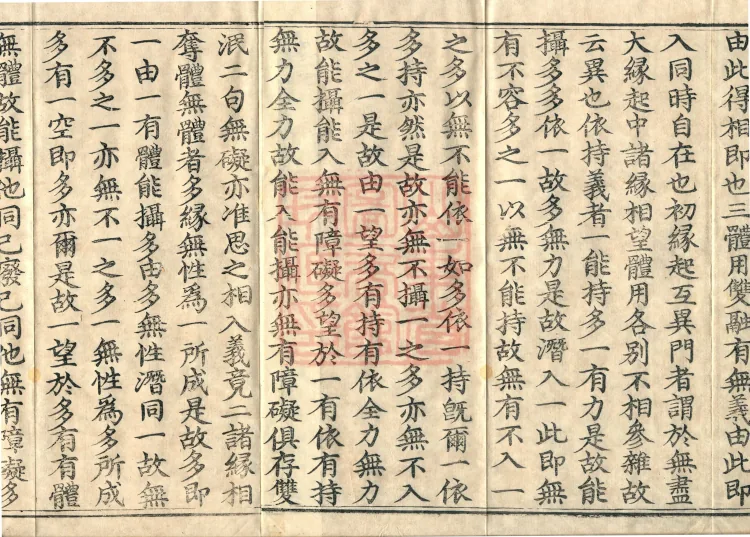 由此得相即也三體用雙融有無義由此即
入同時自在也初緣起互異門者謂於無盡
大縁起中諸縁相望體用各別不相參雜故
云異也依持義者一能持多一有力是故能
攝多多依一故多無力是故潛入一此即無
有不容多之一以無不能持故無有不入一
之多以無不能依一如多依一持旣爾一依
多持亦然是故亦無不攝一之多亦無不入
多之一是故由一望多有持有依全力無力
故能攝能入無有障礙多望於一有依有持
無力全力故能入能攝亦無有障礙俱存雙
泯二句無礙亦准思之相入義竟二諸緣相
奪體無體者多緣無性爲一所成是故多即
一由一有體能攝多由多無性潛同一故無
不多之一亦無不一之多一無性爲多所成
多有一空即多亦爾是故一望於多有有體
無體故能攝他同己廢己同他無有障礙多